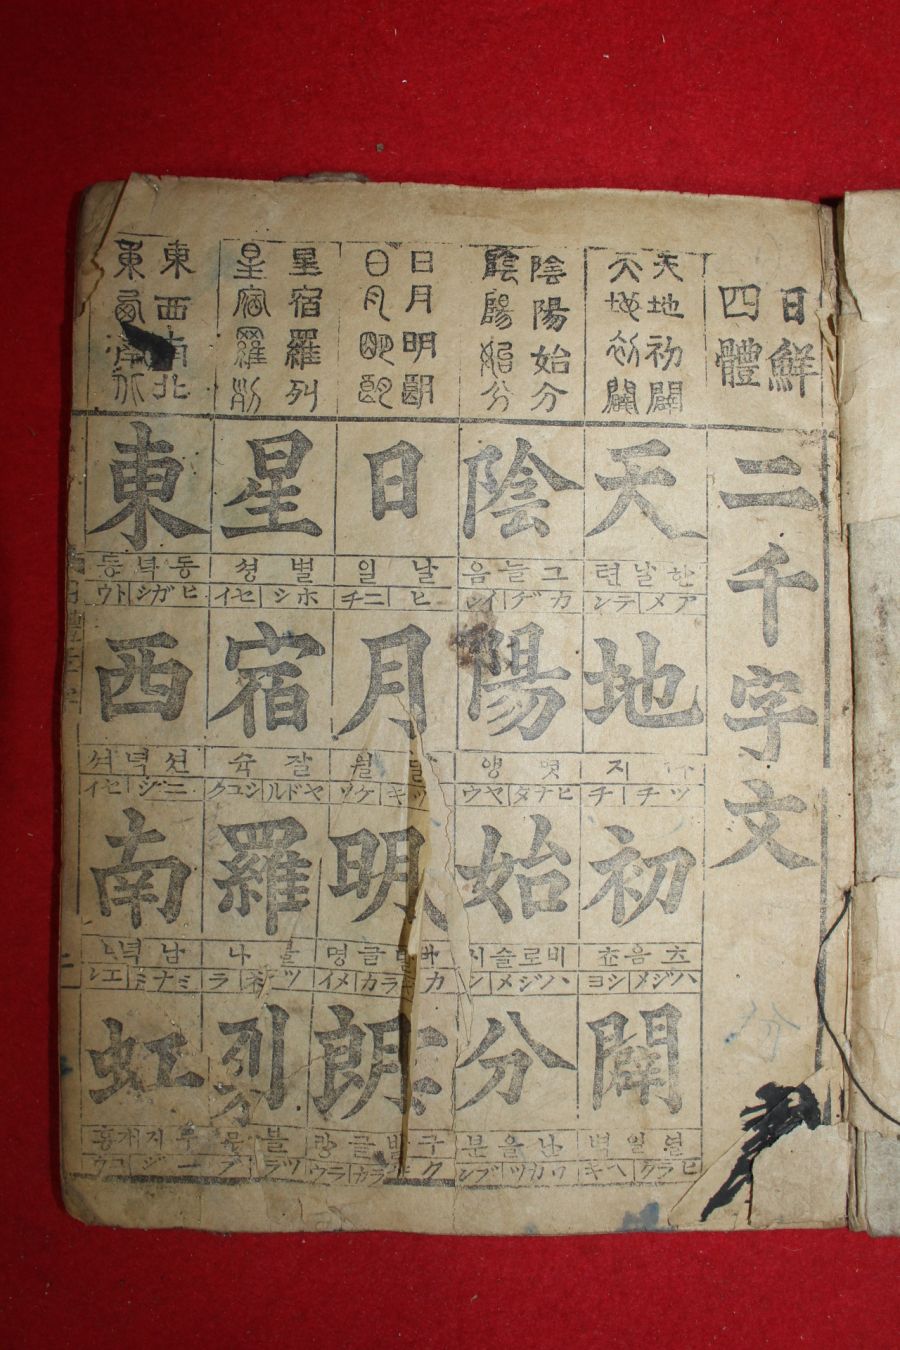 日鮮
四體
二千字文
天地初闢
天地初闢
天
한날련
アメ テン
地
지
ツチ チ
初
ハジメ シヨ
闢
열일벽
ヒラク ヘキ
陰陽始分
陰陽始分
陰
그늘음
カゲ イン
陽
볏양
ヒナタ ヤウ
始
비로슬시
ハジメ シ
分
난을분
ワカツ ブン
日月明朗
日月明朗
日
날일
ヒ ニチ
月
달월
ツキ ゲツ
明
발글명
カラカ メイ
朗
발글랑
ラウ
星宿羅列
星宿羅列
星
별셩
ホシ セイ
宿
잘슉
ヤドル シユク
羅
나
ラ
列
ツラ
東西南北
東西南北
東
동녁동
ヒガシ トウ
西
션녁셔
ニシ セイ
南
남녁
ミナミ
虹
무지개홍
ニジ コウ